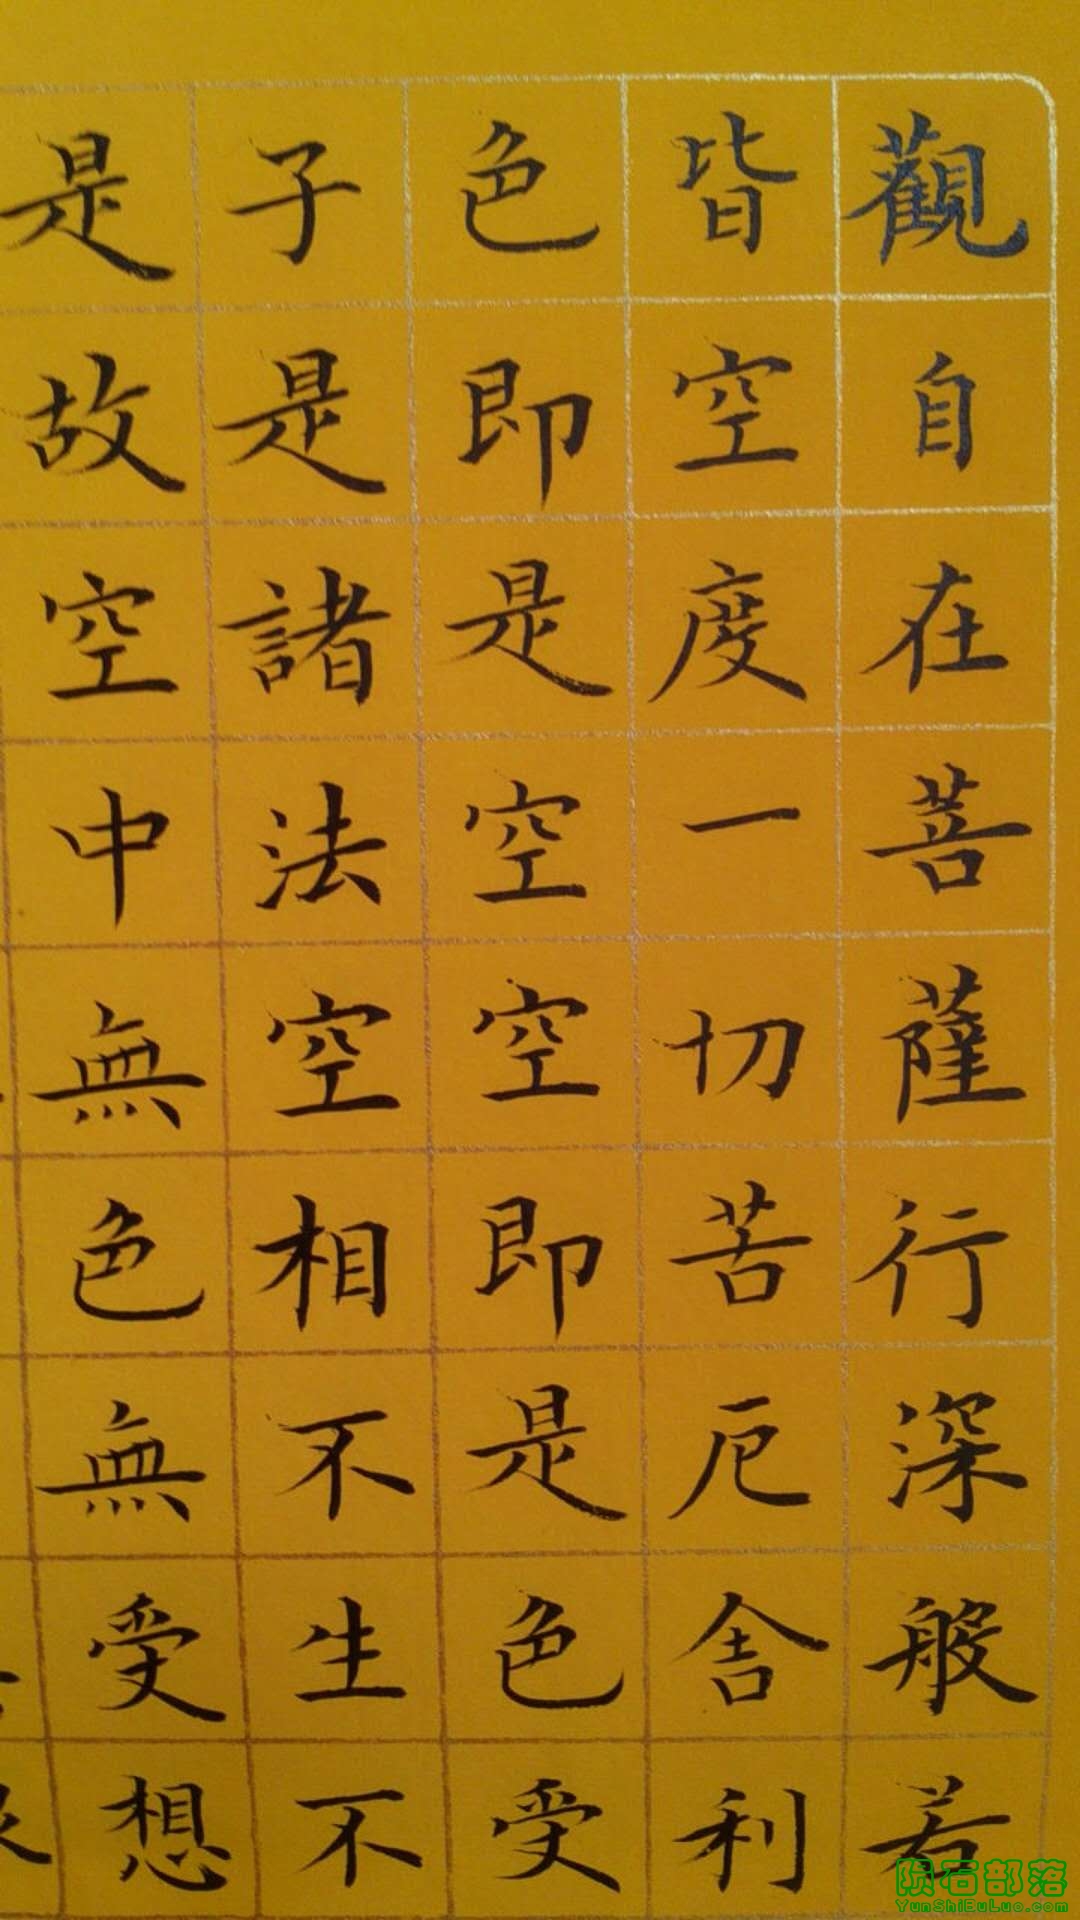 觀自在菩薩行深般若
皆空度一切苦厄舍利
色即是空空即是色受
子是諸法空相不生不
是故空中無色無無受想
隕石部落
YunShiBuLuo.com